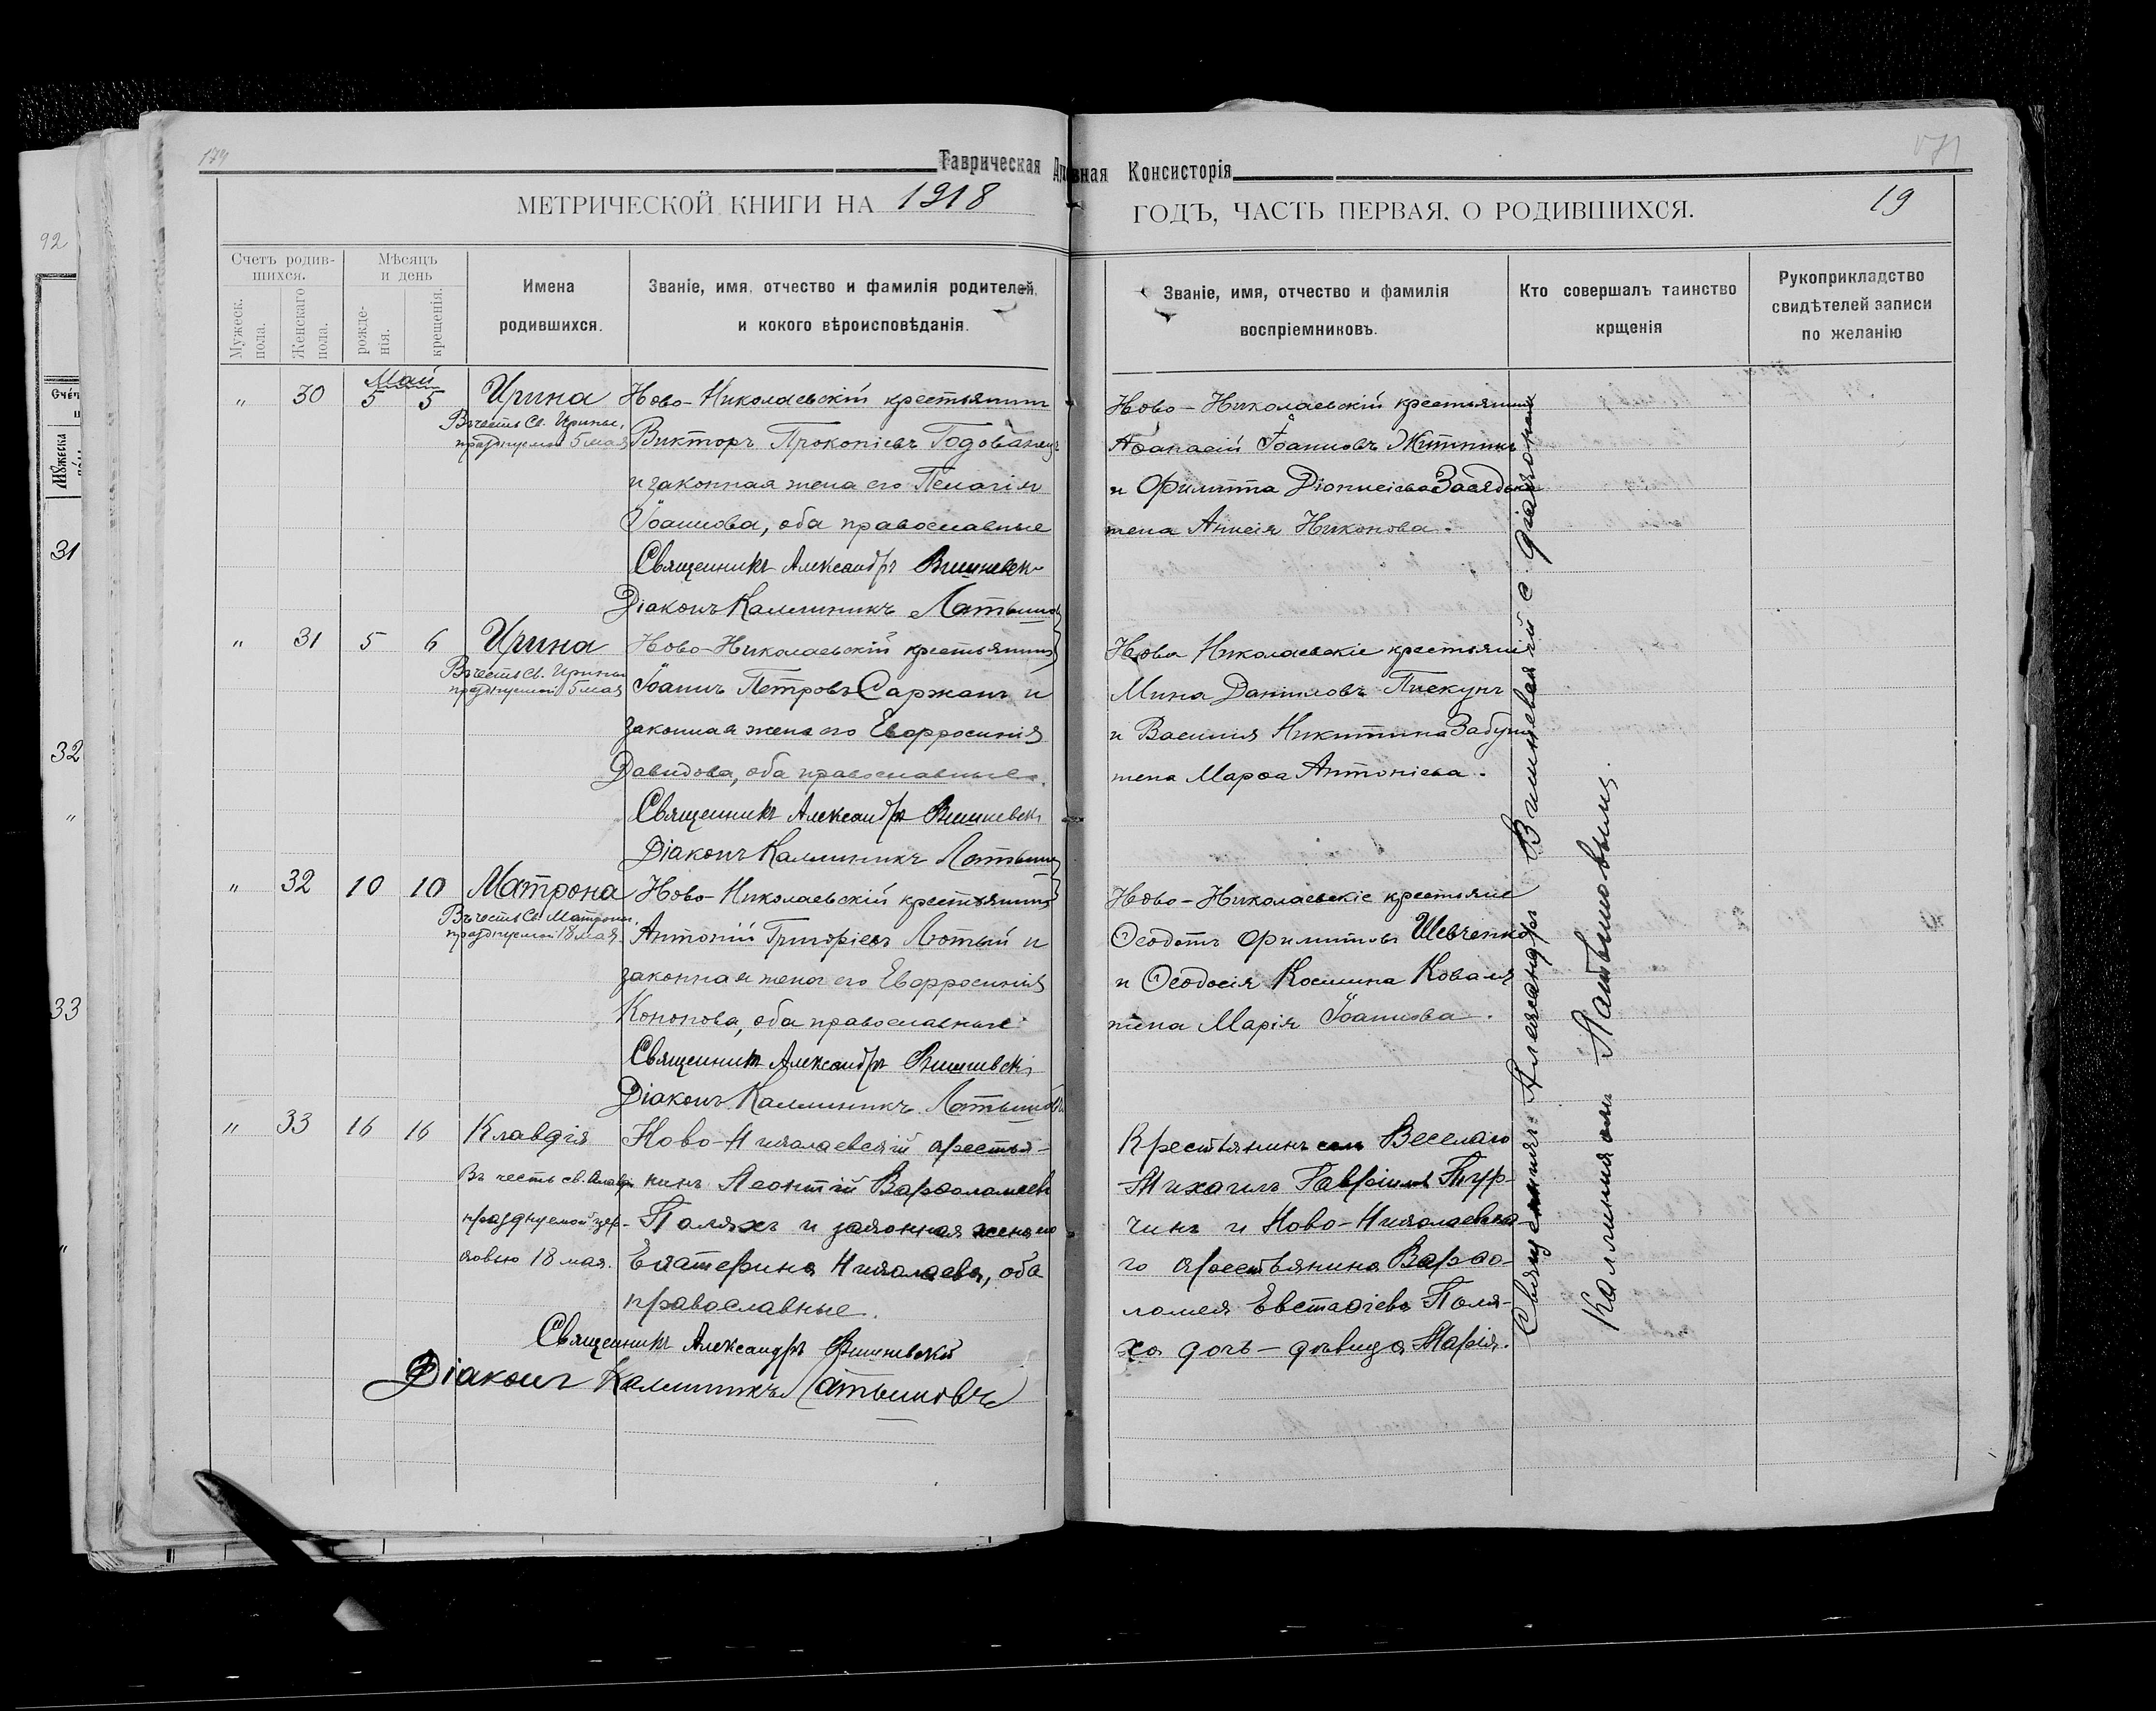 174
Таврическая
вная Консисторія
МЕТРИЧЕСКОЙ КНИГИ НА 1918
ГОДЪ, ЧАСТЬ ПЕРВАЯ, О РОДИВШИХСЯ.
19
92
Счетъ родив-
шихся.
Мужеск. пола.
Женскаго пола.
Мѣсяцъ
и день
рожде-
нія.
крещенія.
Имена
родившихся.
Званіе, имя, отчество и фамилія родителей,
и кокого вѣроисповѣданія.
Званіе, имя, отчество и фамилія
воспріемниковъ.
Кто совершалъ таинство
крщенія
Рукоприкладство
свидѣтелей записи
по желанію
Май
" 30 5 5 Ирина
Въ честь Св. Ирины,
празднуемой 5 мая
Ново-Николаевскій крестьянинъ
Викторъ Прокопіевъ Годованецъ
и законная жена его Пелагія
Іоаннова, оба православные
Священникъ Александръ Вишневск
Діаконъ Каллиникъ Латышов
Ново-Николаевскій крестьянинъ
Аѳанасій Іоанновъ Житникъ
и Филиппа Діонисіева Засядька
жена Анисія Никонова.
" 31 5 6 Ирина
Въ честь Св. Ирины
празднуемой 5 мая
Ново-Николаевскій крестьянинъ
Іоаннъ Петровъ Саржанъ и
законная жена его Евфросинія
Давидова, оба православные.
Священникъ Александръ Вишневск
Діаконъ Каллиникъ Латыш
Ново Николаевскіе крестьяне
Мина Даниловъ Пискунъ
и Василія Никитина Забуги
жена Марѳа Антоніева.
" 32 10 10 Матрона
Въ честь Св. Матроны,
празднуемой 18 мая.
Ново-Николаевскій крестьянинъ
Антоній Григоріевъ Лютый и
законная жена его Евфросинія
Кононова, оба православные
Священникъ Александръ Вишневск
Діаконъ Каллиникъ Латышов
Ново-Николаевскіе крестьяне
Ѳеодотъ Филиповъ Шевченко
и Ѳеодосія Косьмина Коваля
жена Марія Іоаннова.
" 33 16 16 Клавдія
Въ честь св. Клавди
празднуемой цер-
ковью 18 мая.
Ново-Николаевскій крестья-
нинъ Леонтій Варѳоломеевъ
Поляхъ и законная жена его
Екатерина Николаева, оба
православные.
Священникъ Александръ Вишневскій
Діаконъ Каллиникъ Латышовъ
Крестьянинъ села Веселаго
Михаилъ Гавріиловъ Тур-
чинъ и Ново-Николаевска-
го крестьянина Варѳо-
ломея Евстаѳіева Поля-
ха дочь - дѣвица Марія.
Священникъ Александръ Вишневскій с діакономъ
Каллиникомъ Латышовымъ.
31
32
"
33